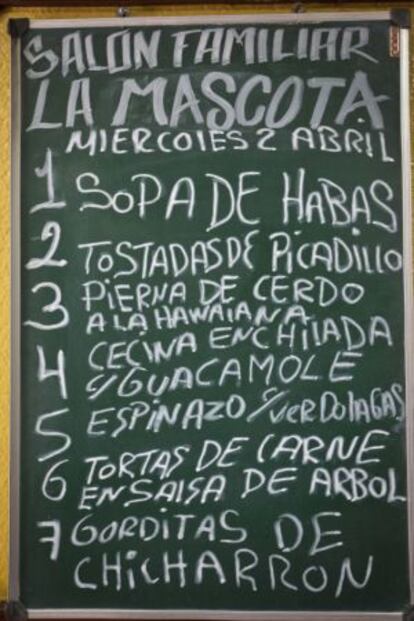 SALÓN FAMILIAR
LA MASCOTA
MIERCOLES 2 ABRIL
1 SOPA DE HABAS
2 TOSTADAS DE PICADILLO
3 PIERNA DE CERDO
A LA HAWAIANA
4 CECINA ENCHILADA
C/GUACAMOLE
5 ESPINAZO C/VERDOLAGAS
6 TORTAS DE CARNE
EN SALSA DE ARBOL
7 GORDITAS DE
CHICHARRON